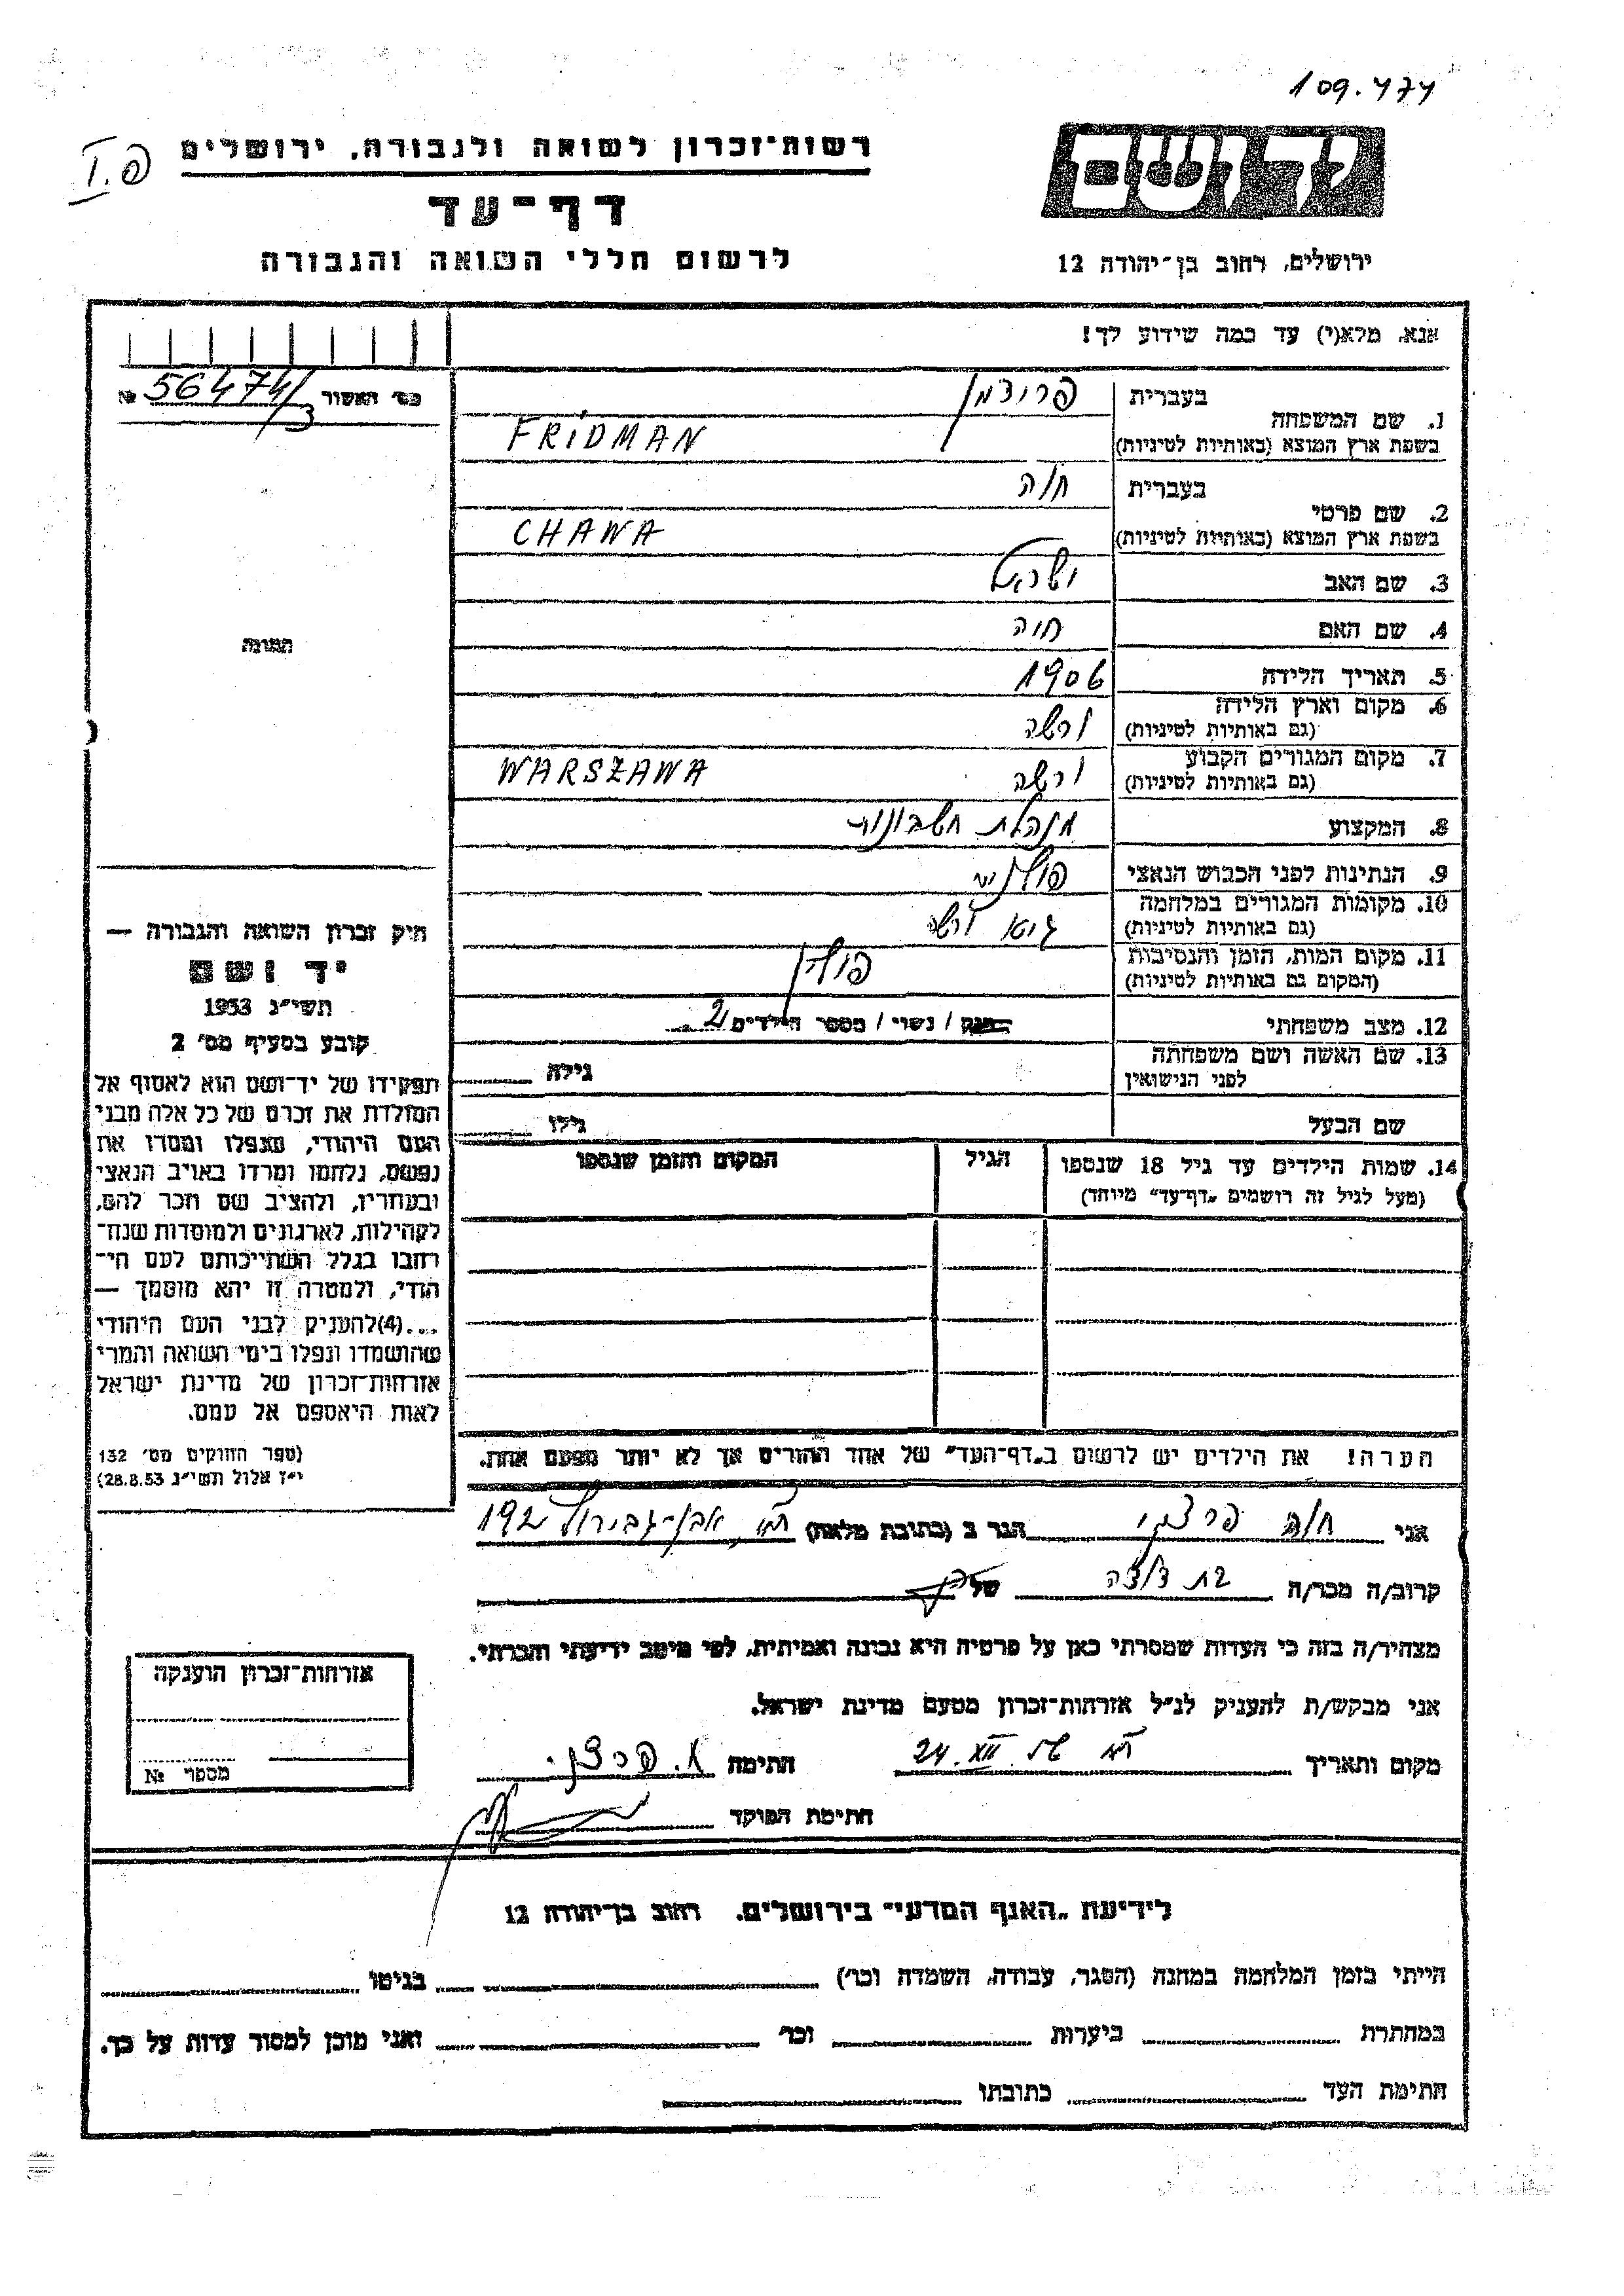 109.474
רשות-זכרון לשואה ולגבורה. ירושלים
דף-עד
לרשום חללי השואה והגבורה
יד ושם
ירושלים, רחוב בן-יהודה 12
אנא, מלא(י) עד כמה שידוע לך!
מס׳ האשור 56474/3 №
1. שם המשפחה
בעברית פרידמן
בשפת ארץ המוצא (באותיות לטיניות) FRIDMAN
2. שם פרטי
בעברית חוה
בשפת ארץ המוצא (באותיות לטיניות) CHAWA
3. שם האב ישראל
4. שם האם חוה
5. תאריך הלידה 1906
6. מקום וארץ הלידה ורשה
(גם באותיות לטיניות)
7. מקום המגורים הקבוע ורשה WARSZAWA
(גם באותיות לטיניות)
8. המקצוע מנהלת חשבונות
9. הנתינות לפני הכבוש הנאצי
10. מקומות המגורים במלחמה גיטו ורשה
(גם באותיות לטיניות)
11. מקום המות, הזמן והנסיבות פולין
(המקום גם באותיות לטיניות)
12. מצב משפחתי רווק / נשוי / מספר הילדים 2
13. שם האשה ושם משפחתה גילה
לפני הנישואין
שם הבעל גילו
14. שמות הילדים עד גיל 18 שנספו הגיל המקום והזמן שנספו
(מעל לגיל זה רושמים „דף-עד” מיוחד)
הערה! את הילדים יש לרשום ב„דף-העד” של אחד ההורים אך לא יותר מפעם אחת.
תמונה
חיק זכרון השואה והגבורה —
יד ושם
תשי״ג 1953
קובע בסעיף מס׳ 2
תפקידו של יד-ושם הוא לאסוף אל
המולדת את זכרם של כל אלה מבני
העם היהודי, שנפלו ומסרו את
נפשם, נלחמו ומרדו באויב הנאצי
ובעוזריו, ולהציב שם וזכר להם,
לקהילות, לארגונים ולמוסדות שנח-
רבו בגלל השתייכותם לעם הי-
הודי, ולמטרה זו יהא מוסמך —
...(4) להעניק לבני העם היהודי
שהושמדו ונפלו בימי השואה והמרי
אזרחות-זכרון של מדינת ישראל
לאות היאספם אל עמם.
(ספר החוקים מס׳ 132
י״ז אלול תשי״ג 28.8.53)
אני חוה הגר ב (כתובת מלאה) אבן-גבירול 192
קרוב/ה מכר/ה בת דודה של
מצהיר/ה בזה כי העדות שמסרתי כאן על פרטיה היא נכונה ואמיתית, לפי מיטב ידיעתי והכרתי.
אני מבקש/ת להעניק לנ״ל אזרחות-זכרון מטעם מדינת ישראל.
מקום ותאריך 24.XII חתימה
חתימת הפוקד
אזרחות-זכרון הוענקה
מספר №
לידיעת „האגף המדעי” בירושלים. רחוב בן-יהודה 12
הייתי בזמן המלחמה במחנה (הסגר, עבודה, השמדה וכו׳) בגיטו
במחתרת ביערות וכו׳ ואני מוכן למסור עדות על כך.
חתימת העד כתובתו